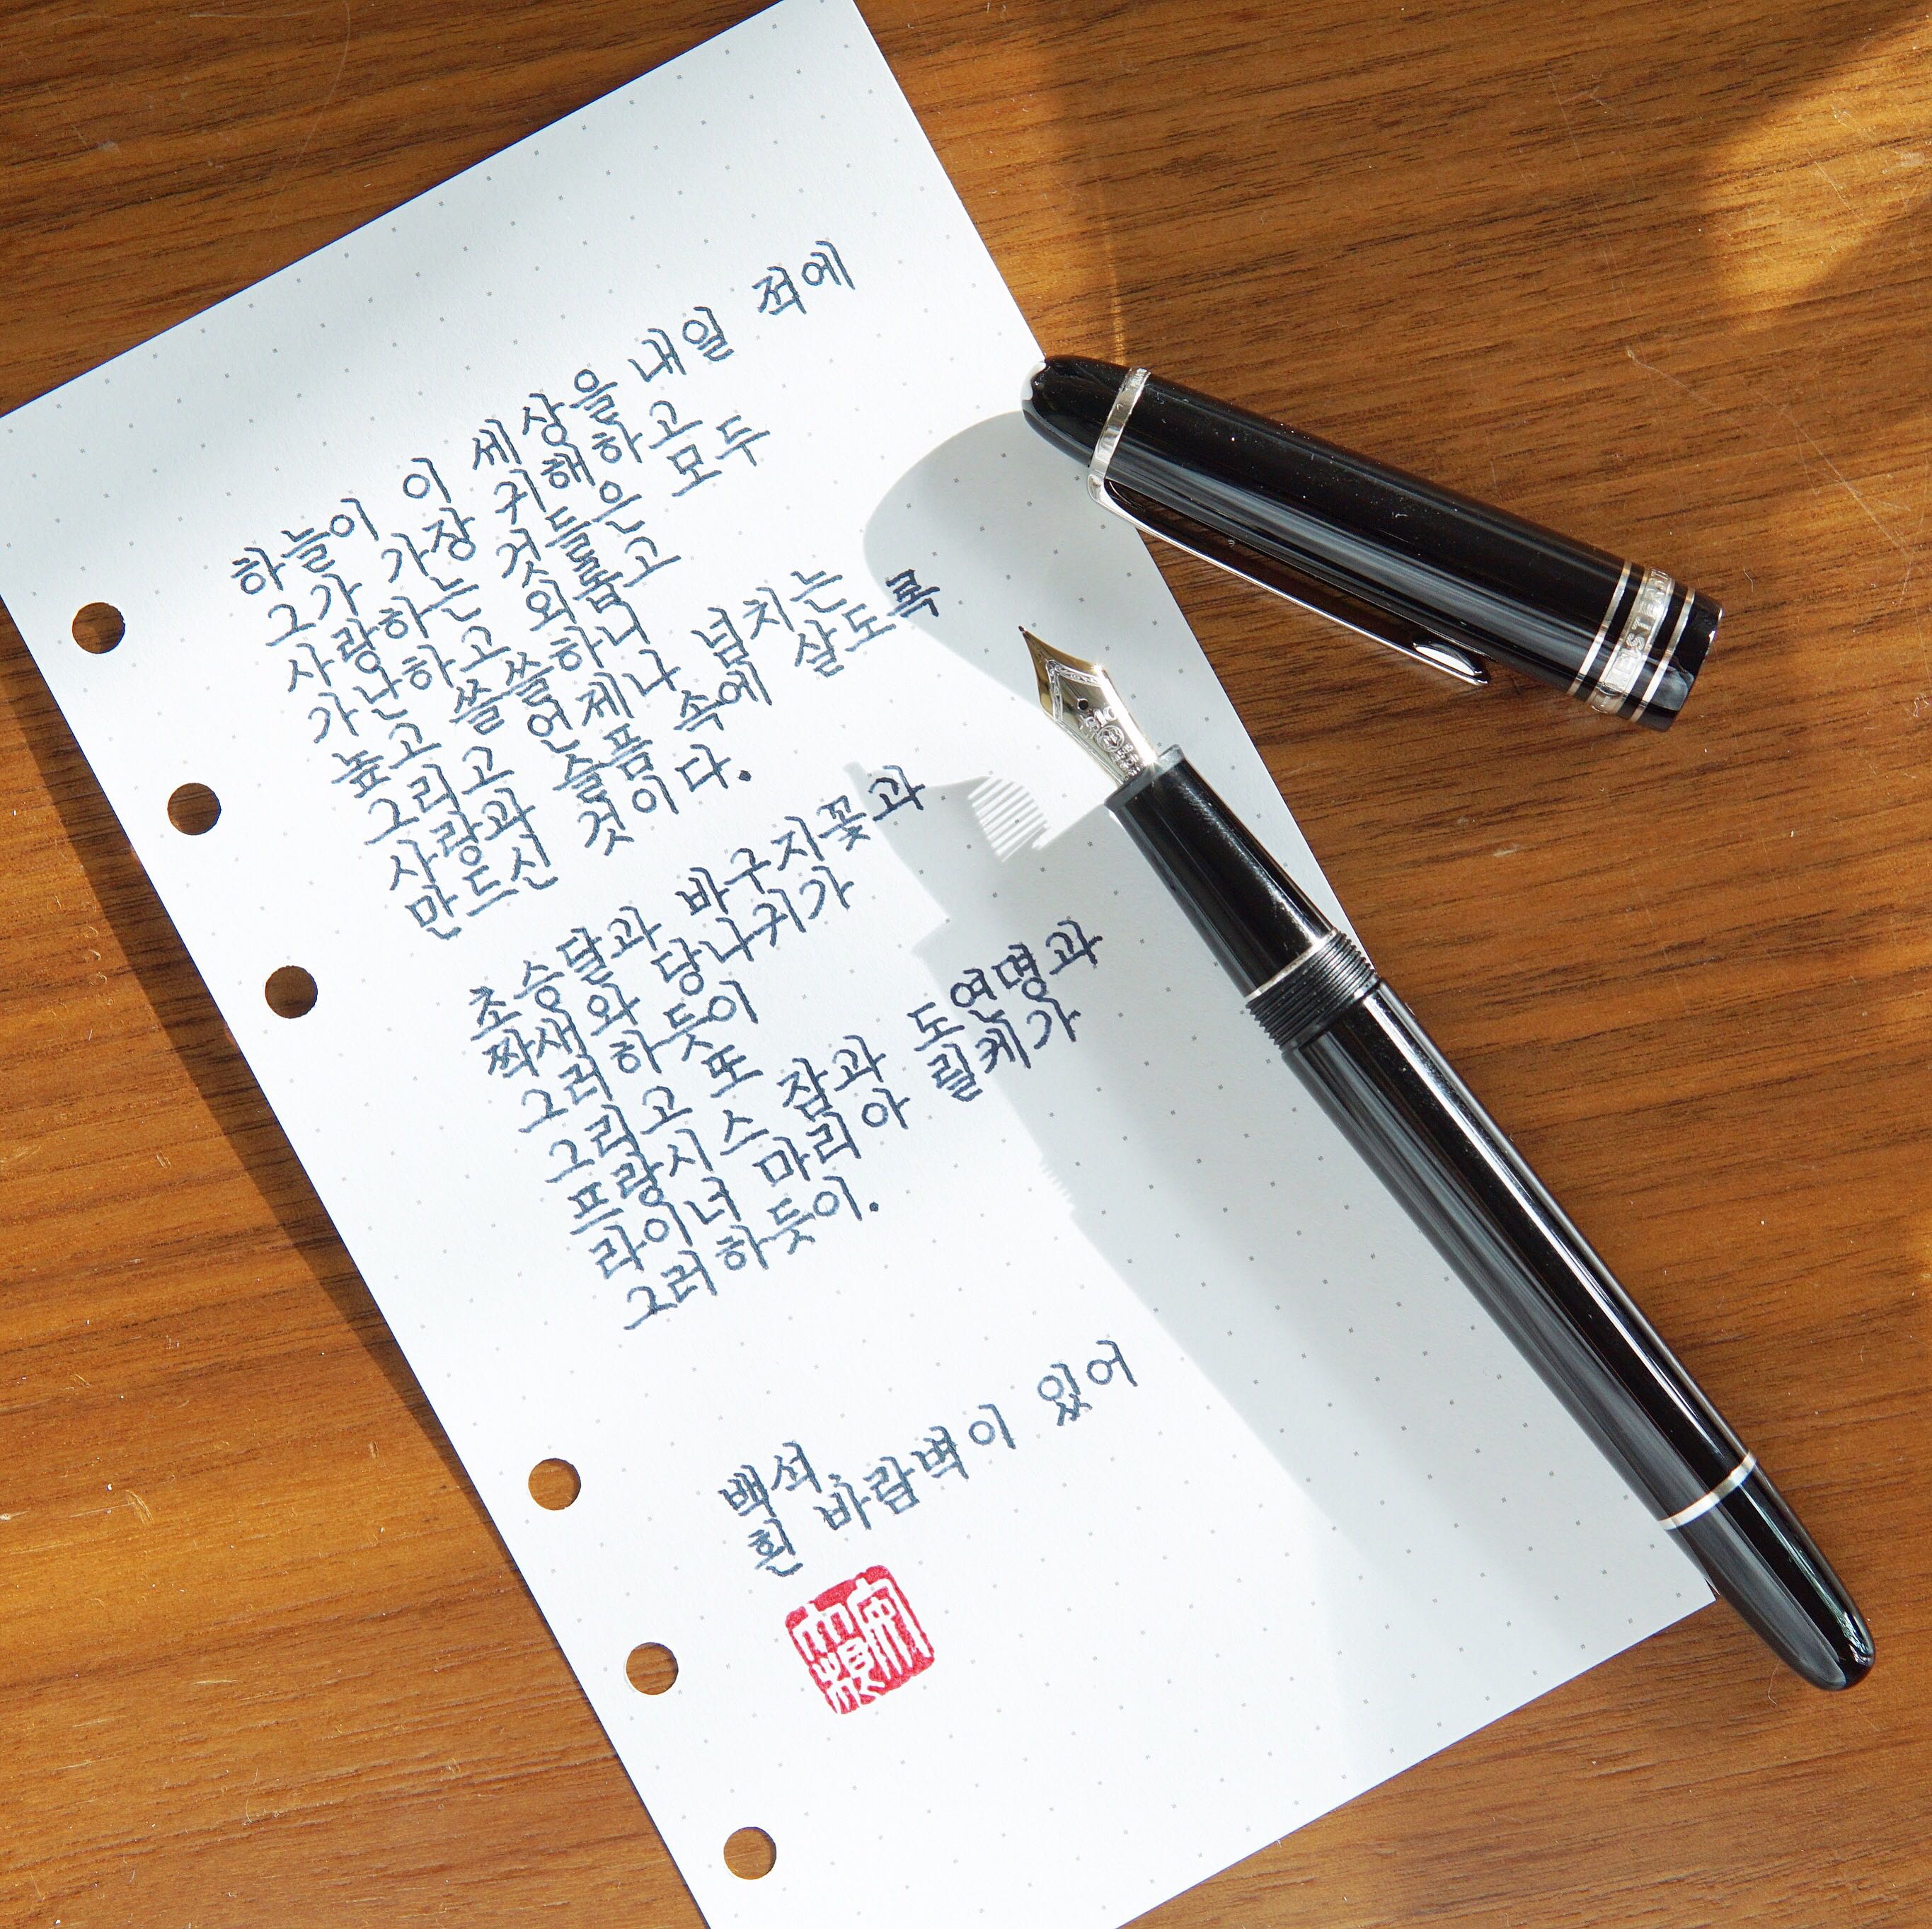 하늘이 이 세상을 내일 적에
그가 가장 귀해하고
사랑하는 것들은 모두
가난하고 외롭고
높고 쓸쓸하니
그리고 언제나 넘치는
사랑과 슬픔 속에 살도록
만드신 것이다.
초승달과 바구지꽃과
짝새와 당나귀가
그러하듯이
그리고 또
프랑시스 잠과 도연명과
라이너 마리아 릴케가
그러하듯이.
백석,
흰 바람벽이 있어